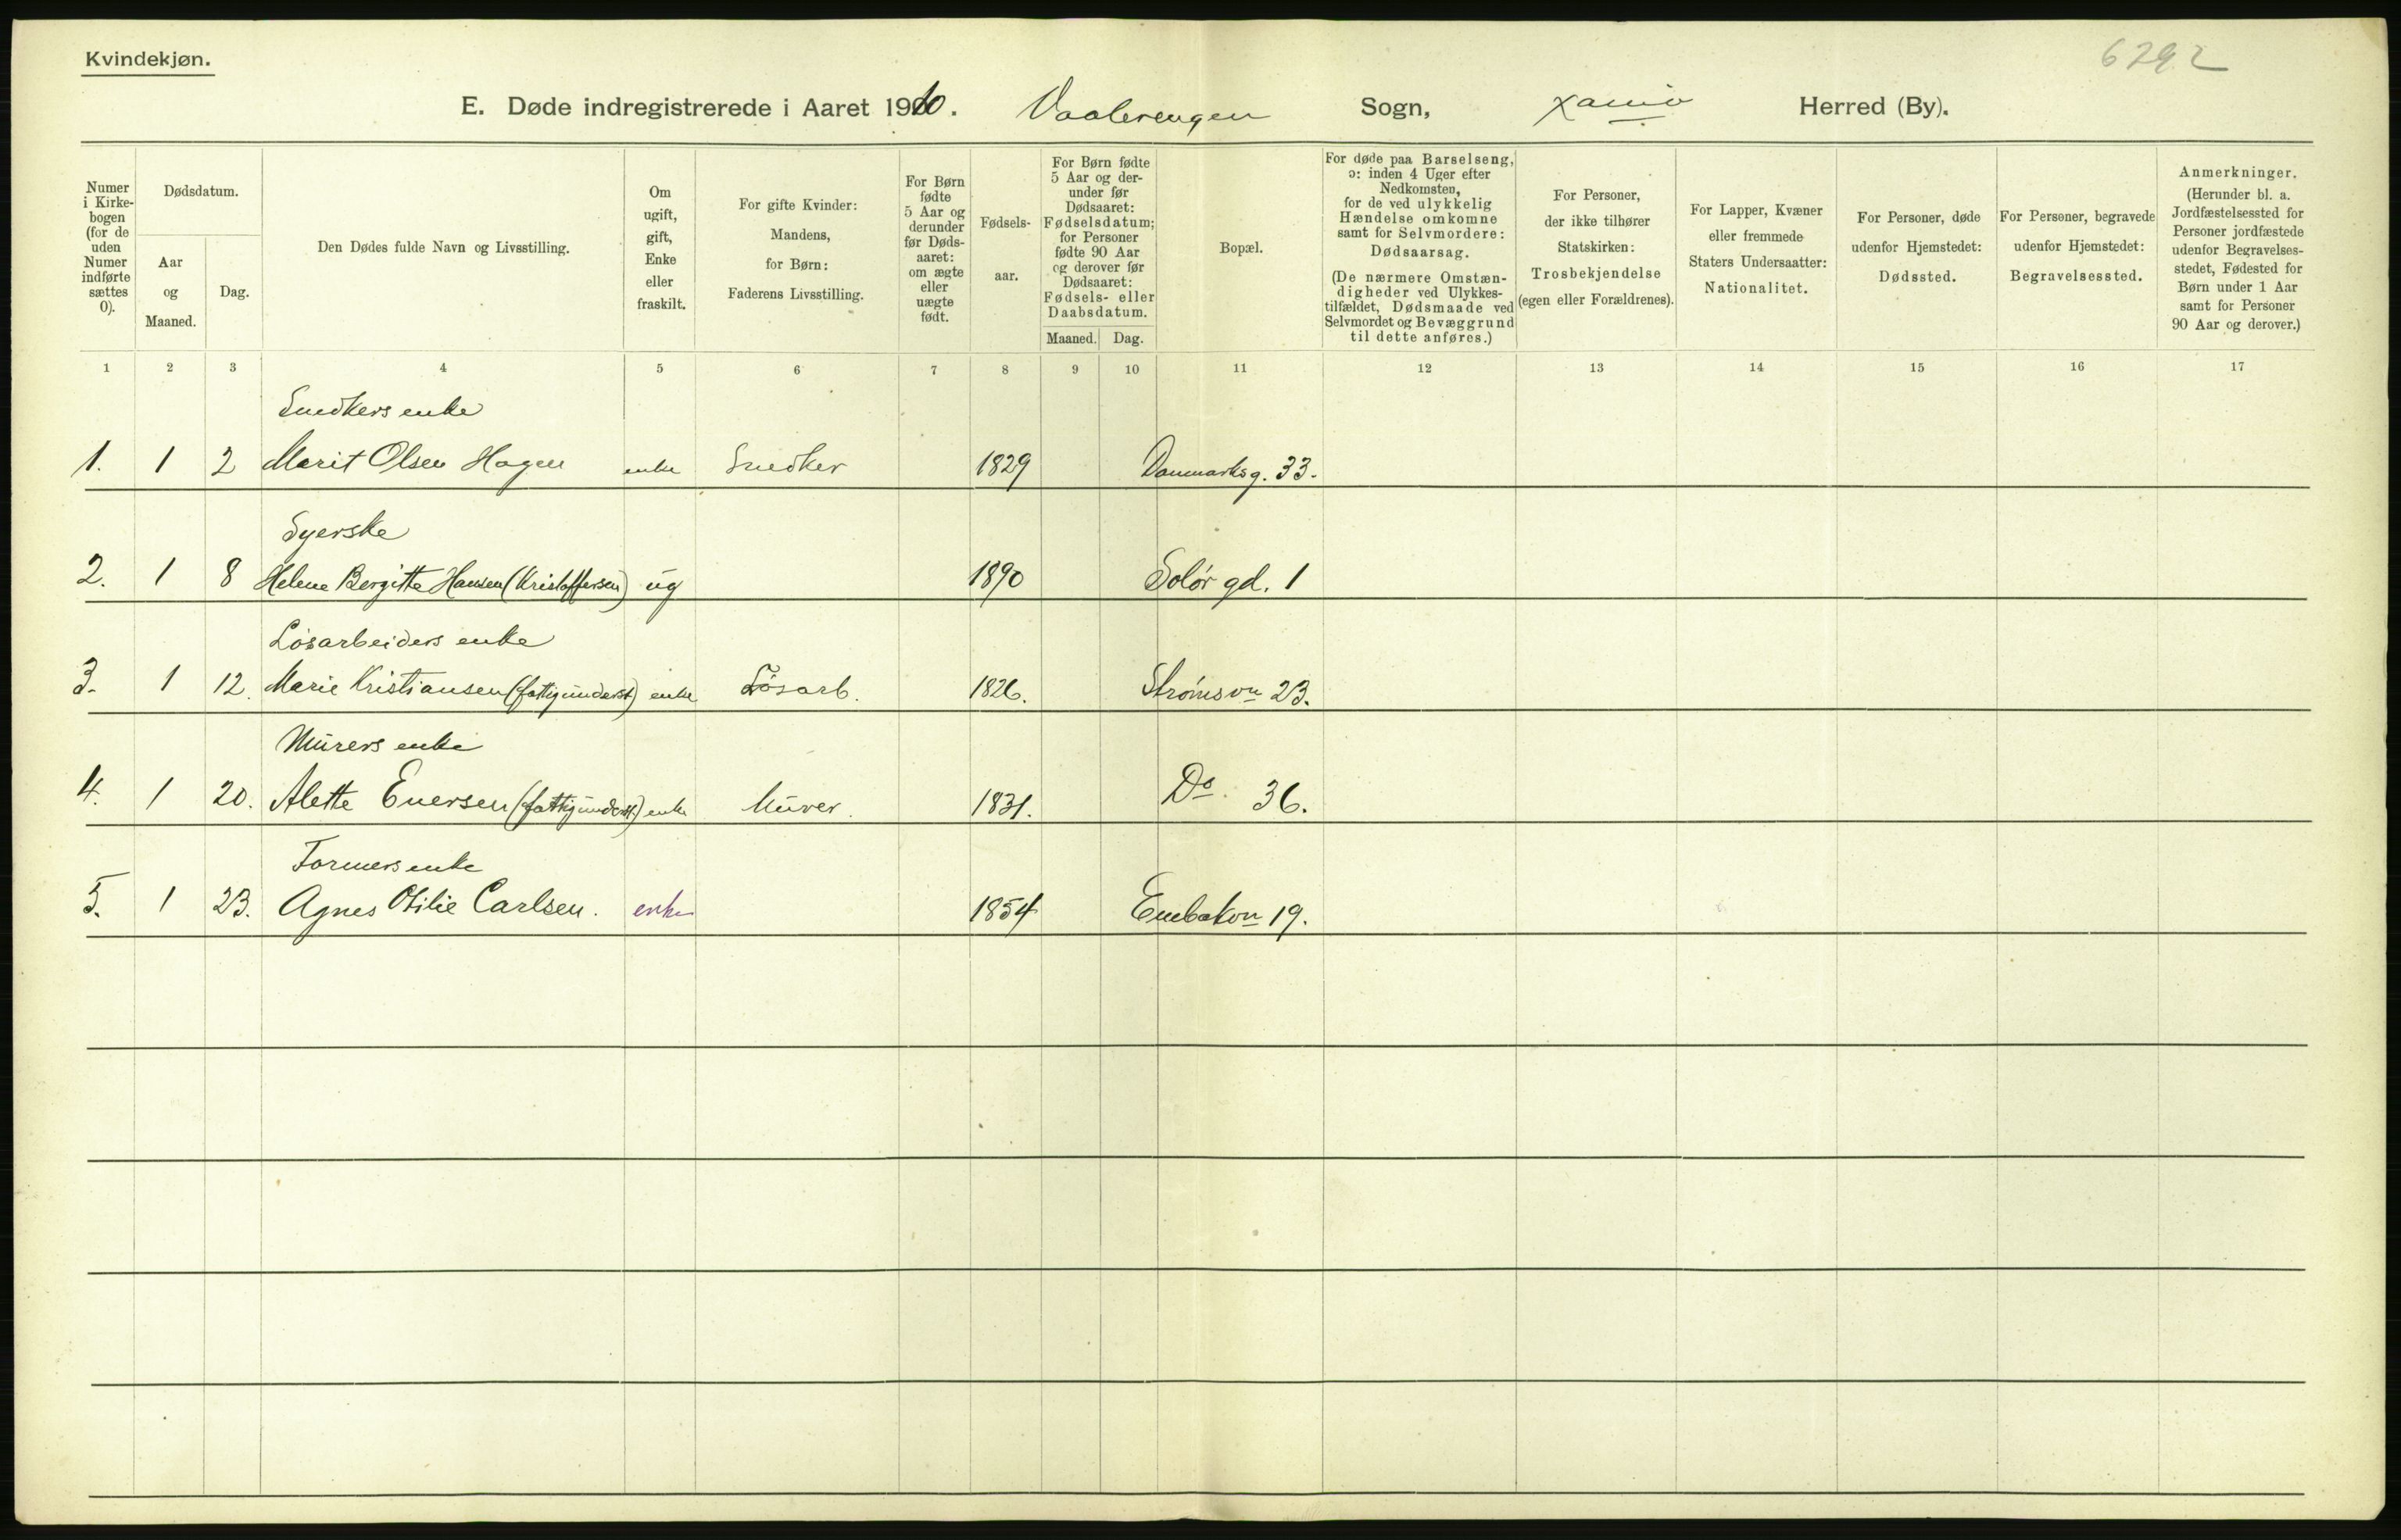 Kvindekjøn.
6292
E. Døde indregistrerede i Aaret 1910. Vaalerengen Sogn, Xania Herred (By).
Numer i Kirke-bogen (for de uden Numer indførte sættes 0).
Dødsdatum.
Aar og Maaned.
Dag.
Den Dødes fulde Navn og Livsstilling.
Om ugift, gift, Enke eller fraskilt.
For gifte Kvinder: Mandens, for Børn: Faderens Livsstilling.
For Børn fødte 5 Aar og derunder før Døds-aaret: om ægte eller uægte født.
Fødsels-aar.
For Børn fødte 5 Aar og der-under før Dødsaaret: Fødselsdatum; for Personer fødte 90 Aar og derover før Dødsaaret: Fødsels- eller Daabsdatum.
Maaned. Dag.
Bopæl.
For døde paa Barselseng, ɔ: inden 4 Uger efter Nedkomsten, for de ved ulykkelig Hændelse omkomne samt for Selvmordere: Dødsaarsag.
(De nærmere Omstæn-digheder ved Ulykkes-tilfældet, Dødsmaade ved Selvmordet og Bevæggrund til dette anføres.)
For Personer, der ikke tilhører Statskirken: Trosbekjendelse (egen eller Forældrenes).
For Lapper, Kvæner eller fremmede Staters Undersaatter: Nationalitet.
For Personer, døde udenfor Hjemstedet: Dødssted.
For Personer, begravede udenfor Hjemstedet: Begravelsessted.
Anmerkninger.
(Herunder bl. a. Jordfæstelsessted for Personer jordfæstede udenfor Begravelses-stedet, Fødested for Børn under 1 Aar samt for Personer 90 Aar og derover.)
1 2 3 4 5 6 7 8 9 10 11 12 13 14 15 16 17
Snedkers enke
1. 1 2 Marit Olsen Hagen enke Snedker 1829 Danmarksg. 33.
Syerske
2. 1 8 Helene Bergitte Hansen (Kristoffersen) ug 1890 Solør gd. 1
Løsarbeiders enke
3. 1 12. Marie Kristiansen (fattigunderst) enke Løsarb. 1826. Strømsvn 23.
Murers enke
4. 1 20. Alette Enersen (fattigunderst) enke Murer. 1831. Do. 36.
Formers enke
5. 1 23. Agnes Otilie Carlsen. enke 1854 Enebakvn 19.